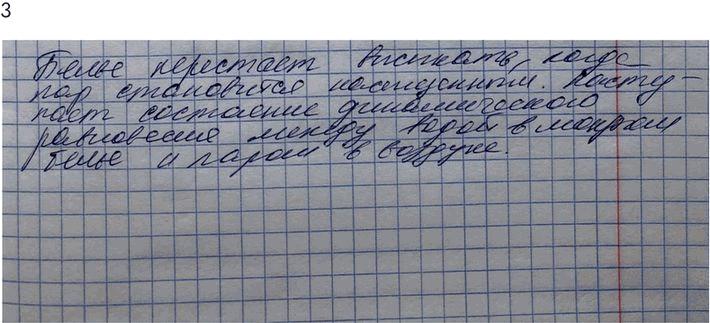 3
Белье перестает высыхать, когда
пар становится насыщенным. Насту-
пает состояние динамического
равновесия между водой в мокром
белье и паром в воздухе.